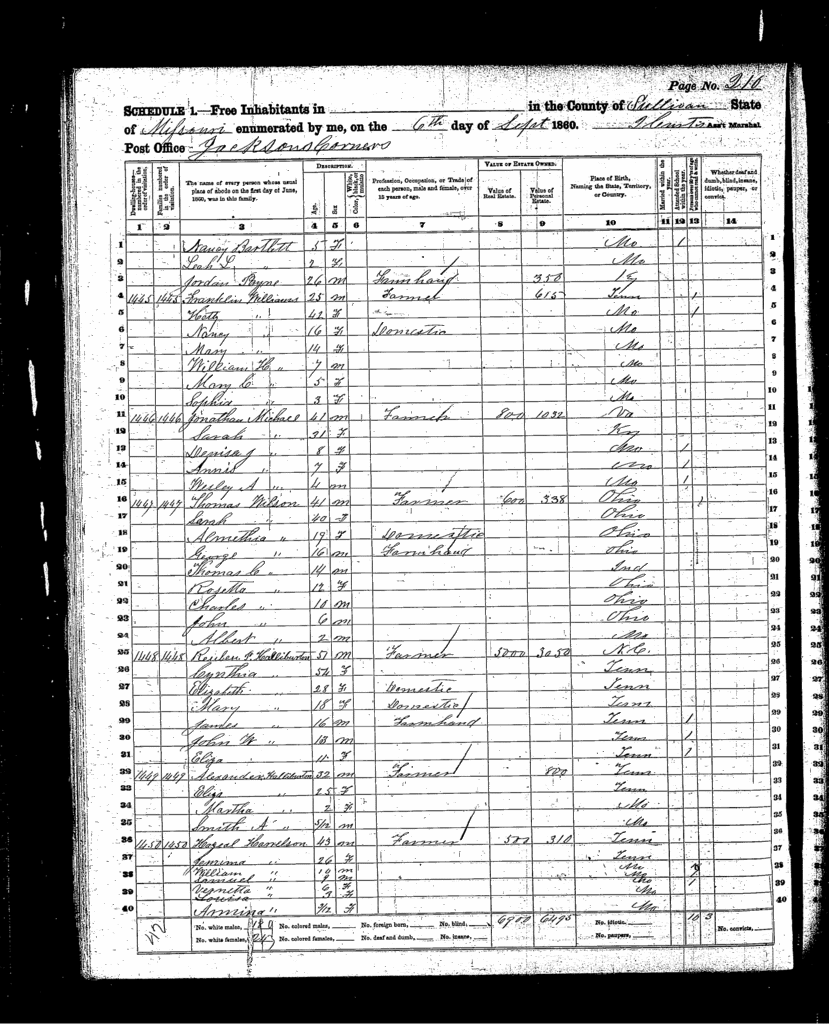 Page No. 210
SCHEDULE 1.—Free Inhabitants in in the County of Sullivan State
of Missouri enumerated by me, on the 6th day of Sept 1860. Ass't Marshal
Post Office Jacksons Corners
DESCRIPTION. VALUE OF ESTATE OWNED.
Dwelling-houses—numbered in the order of visitation. Families numbered in the order of visitation. The name of every person whose usual place of abode on the first day of June, 1860, was in this family. Age. Sex. Color, White, black, or mulatto Profession, Occupation, or Trade of each person, male and female, over 15 years of age. Value of Real Estate. Value of Personal Estate. Place of Birth, Naming the State, Territory, or Country. Married within the year. Attended School within the year. Whether deaf and dumb, blind, insane, idiotic, pauper, or convict.
1 2 3 4 5 6 7 8 9 10 11 12 13 14
1 Nancy Bartlett 5 F Mo 1 1
2 Leah L " 2 F Mo 2
3 Jordan Payne 26 m Farmhand 350 Ky 3
4 1445 1445 Franklin Williams 25 m Farmer 615 Tenn 1 4
5 " 42 F Mo 1 5
6 Nancy " 16 F Domestic Mo 6
7 Mary " 14 F Mo 7
8 William H " 7 m Mo 8
9 Mary C " 5 F Mo 9
10 Sophia " 3 F Mo 10
11 1446 1446 Jonathan Michael 41 m Farmer 800 1032 Va 11
12 Sarah " 31 F Ky 12
13 " 8 F Mo 1 13
14 Annis " 7 F Mo 1 14
15 Wesley A " 4 m Mo 1 15
16 1447 1447 Thomas Wilson 41 m Farmer 600 338 Ohio 1 16
17 Sarah " 40 F Ohio 17
18 Almethia " 19 F Domestic Ohio 18
19 George " 16 m Farmhand Ohio 19
20 Thomas C " 14 m Ind 20
21 Rosetta " 12 F Ohio 21
22 Charles " 10 m Ohio 22
23 John " 6 m Ohio 23
24 Albert " 2 m Mo 24
25 1448 1448 Halliburton 51 m Farmer 5000 3050 N.C. 25
26 Cynthia " 54 F Tenn 26
27 Elizabeth " 28 F Domestic Tenn 27
28 Mary " 18 F Domestic Tenn 28
29 James " 16 m Farmhand Tenn 1 29
30 John W " 13 m Tenn 1 30
31 Eliza " 11 F Tenn 1 31
32 1449 1449 Alexander Halliburton 32 m Farmer 800 Tenn 32
33 Eliza " 25 F Tenn 33
34 Martha " 2 F Mo 34
35 Smith A " 5/12 m Mo 35
36 1450 1450 Harrelson 43 m Farmer 500 310 Tenn 36
37 Jemima " 26 F Tenn 37
38 William " 10 m Mo 38
Samuel " m Mo 1
39 Vernetta " 6 F Mo 39
Louisa " 3 F
40 Armina " F Mo 40
42 No. white males, No. colored males, No. foreign born, No. blind, 6900 6495 No. idiotic, 10 3 No. convicts,
No. white females, No. colored females, No. deaf and dumb, No. insane, No. paupers,